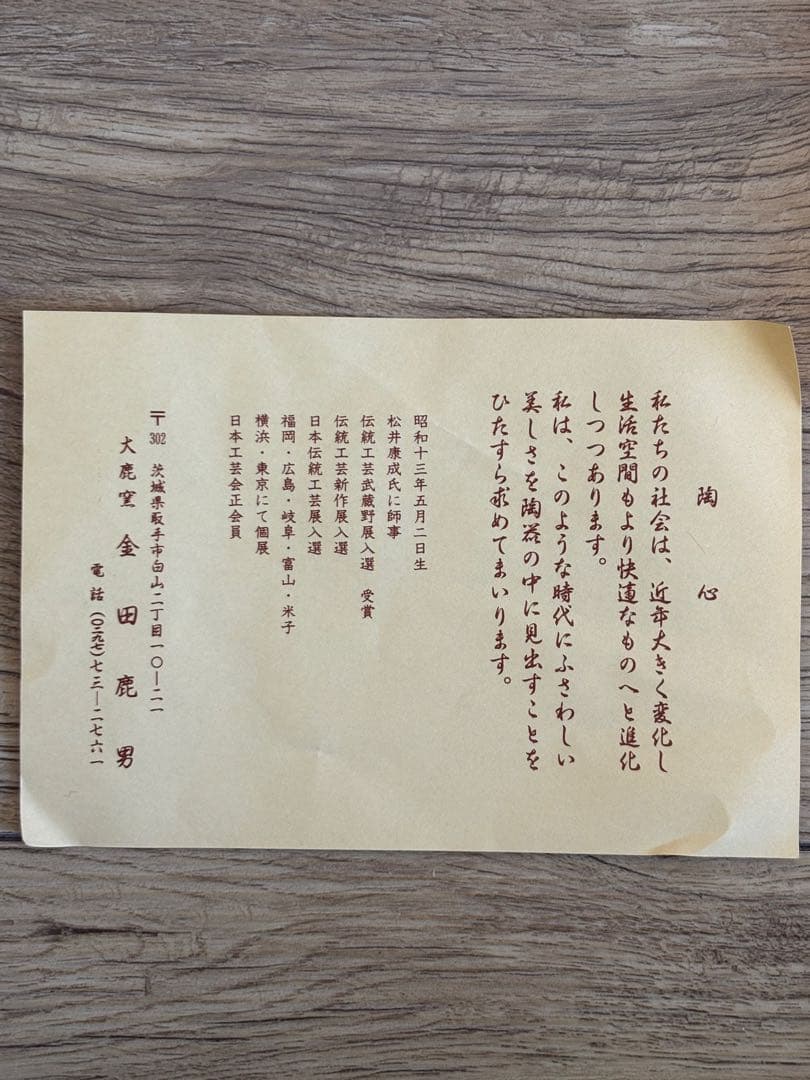 陶心
私たちの社会は、近年大きく変化し
生活空間もより快適なものへと進化
しつつあります。
私は、このような時代にふさわしい
美しさを陶器の中に見出すことを
ひたすら求めてまいります。
昭和十三年五月二日生
松井康成氏に師事
伝統工芸武蔵野展入選　受賞
伝統工芸新作展入選
日本伝統工芸展入選
福岡・広島・岐阜・富山・米子
横浜・東京にて個展
日本工芸会正会員
〒302 茨城県取手市白山二丁目一〇―二一
大鹿窯　金田鹿男
電話（〇二九七）七三―二七六一